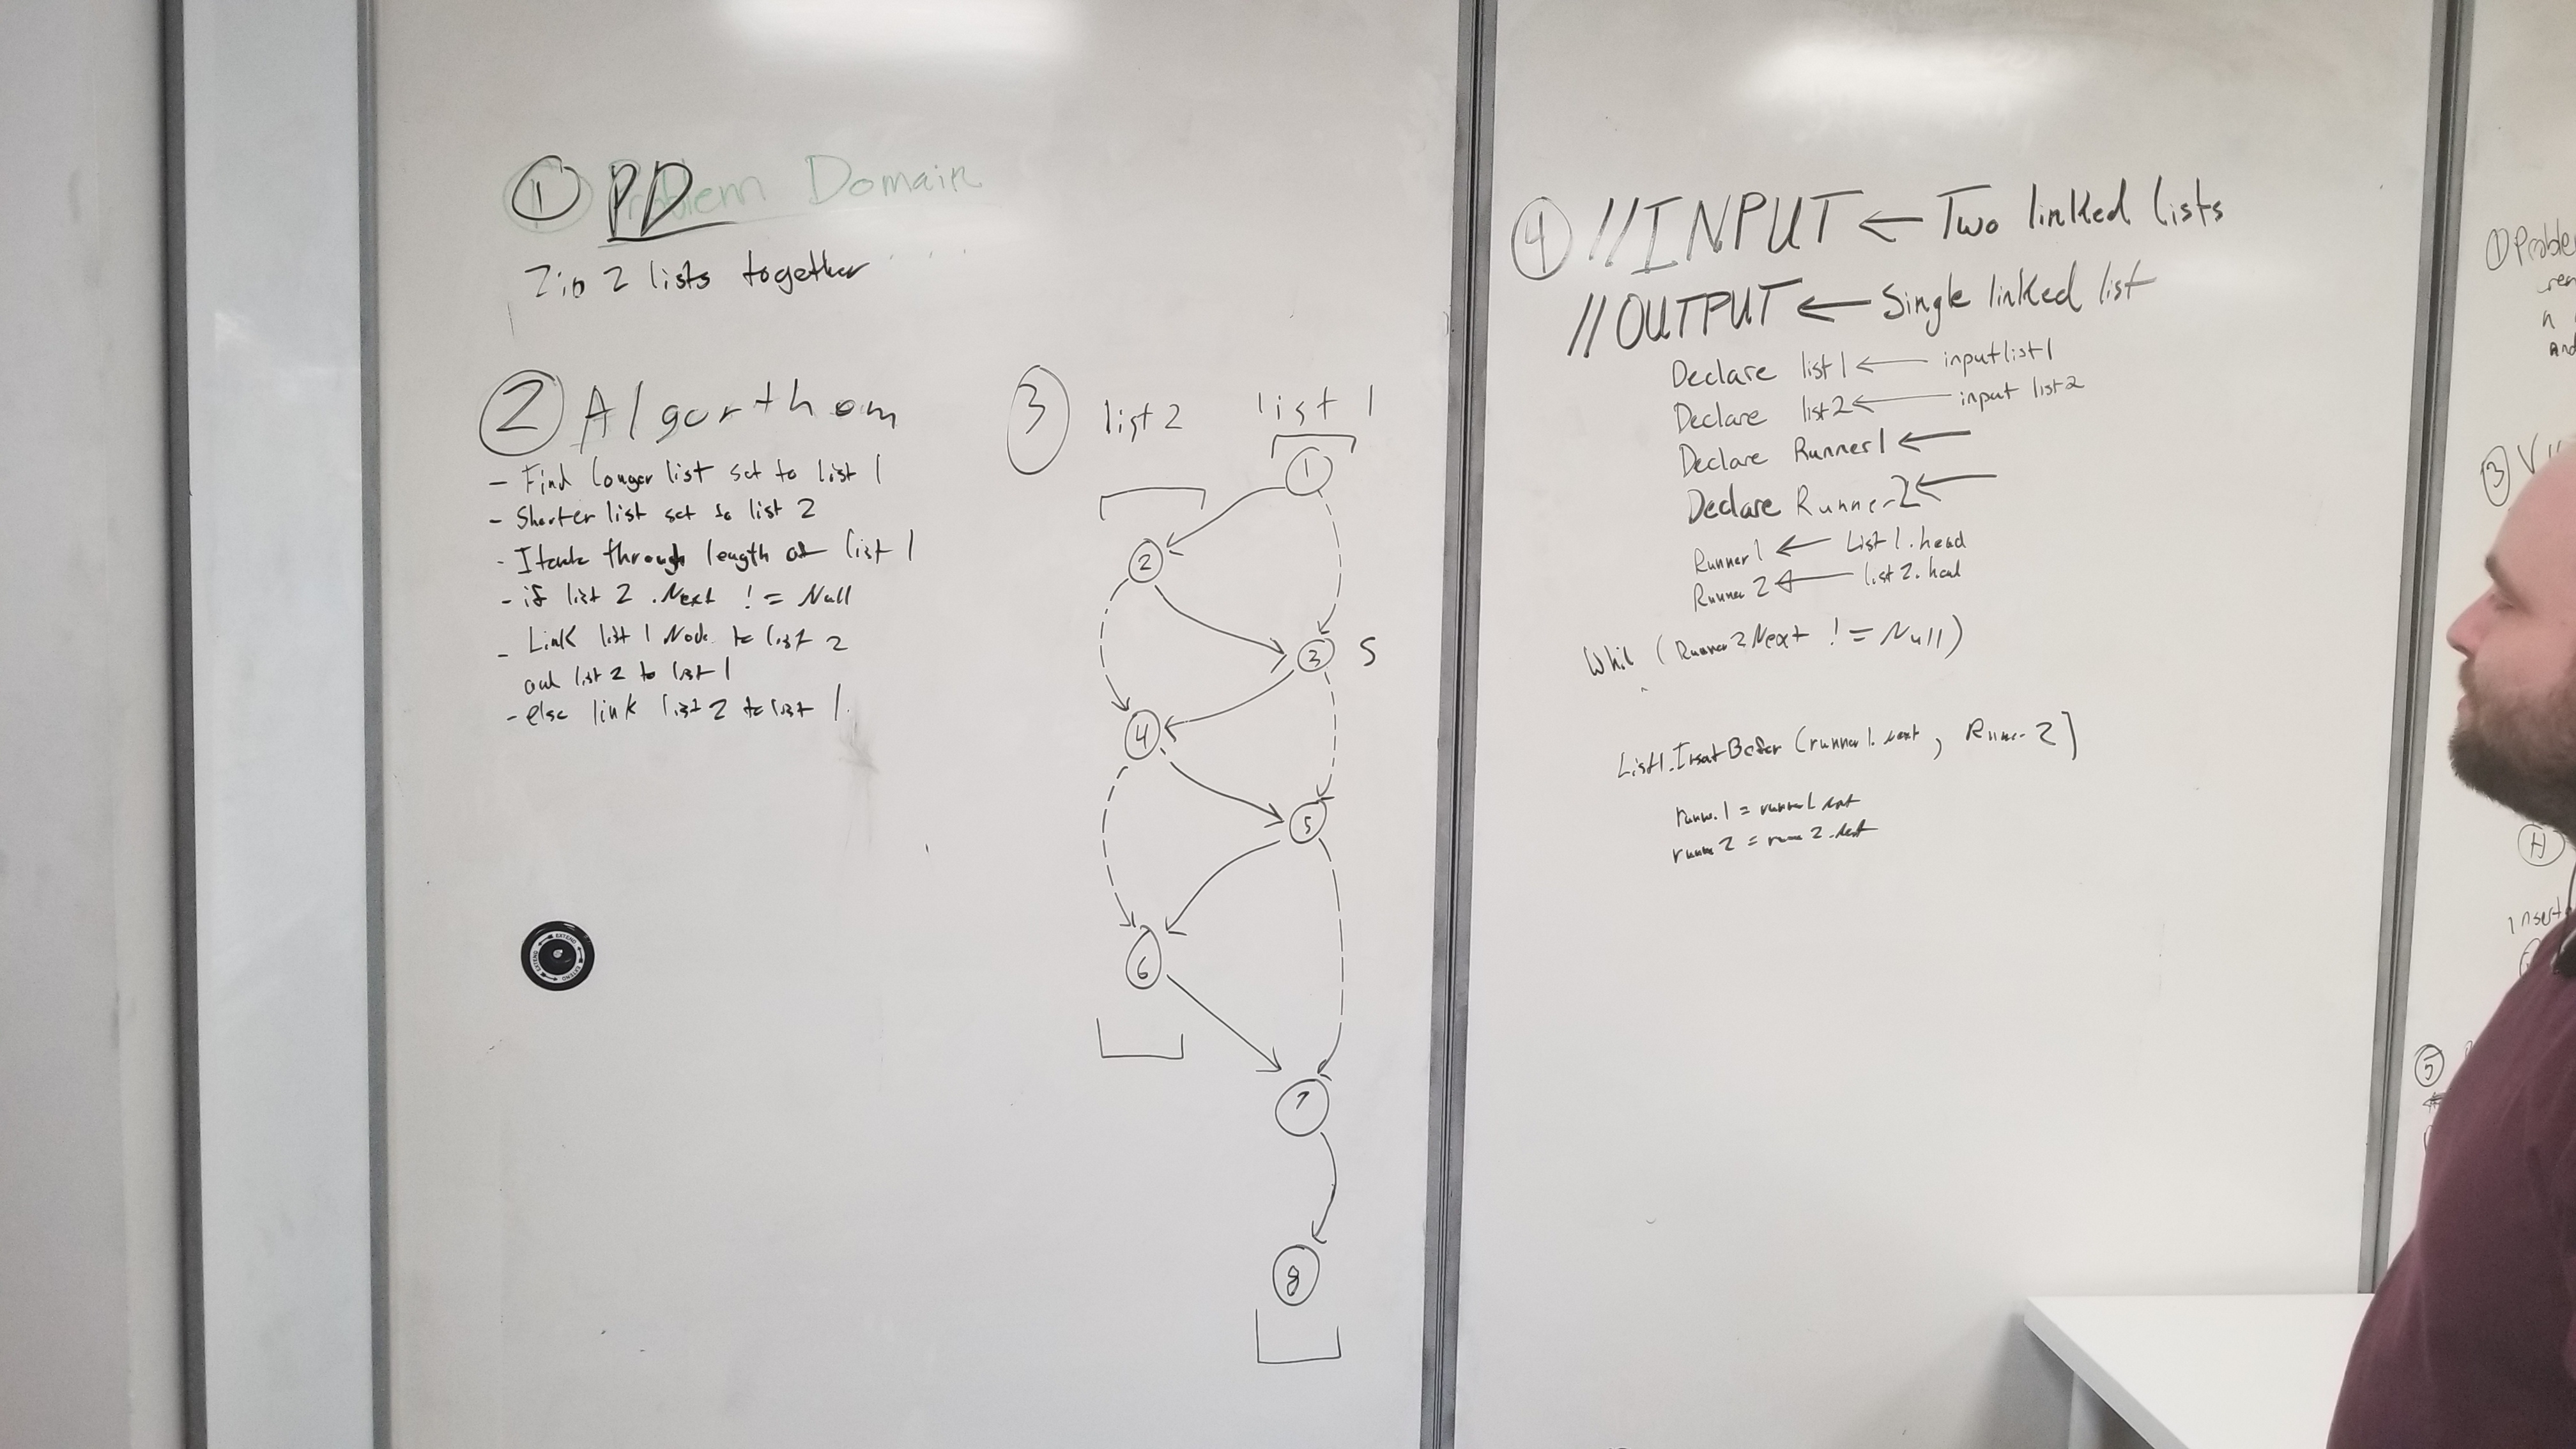 ① PD
Problem Domain
Zip 2 lists together
② Algorthom
- Find longer list set to list 1
- Shorter list set to list 2
- Iterate through length of list 1
- if list 2 .Next != Null
- Link list 1 Node to list 2
and list 2 to list 1
- else link list 2 to list 1.
③ list 2 list 1
1
2
3 5
4
5
6
7
8
EXTEND EXTEND EXTEND
④ //INPUT ← Two linked lists
//OUTPUT ← Single linked list
Declare list 1 ← input list 1
Declare list 2 ← input list 2
Declare Runner1 ←
Declare Runner2 ←
Runner1 ← List 1.head
Runner 2 ← list 2.head
While (Runner2Next != Null)
List1.InsertBefor (runner1.next, Runner 2)
runner1 = runner1.next
runner2 = runner2.next
① Proble
n
③
④
insert
⑤